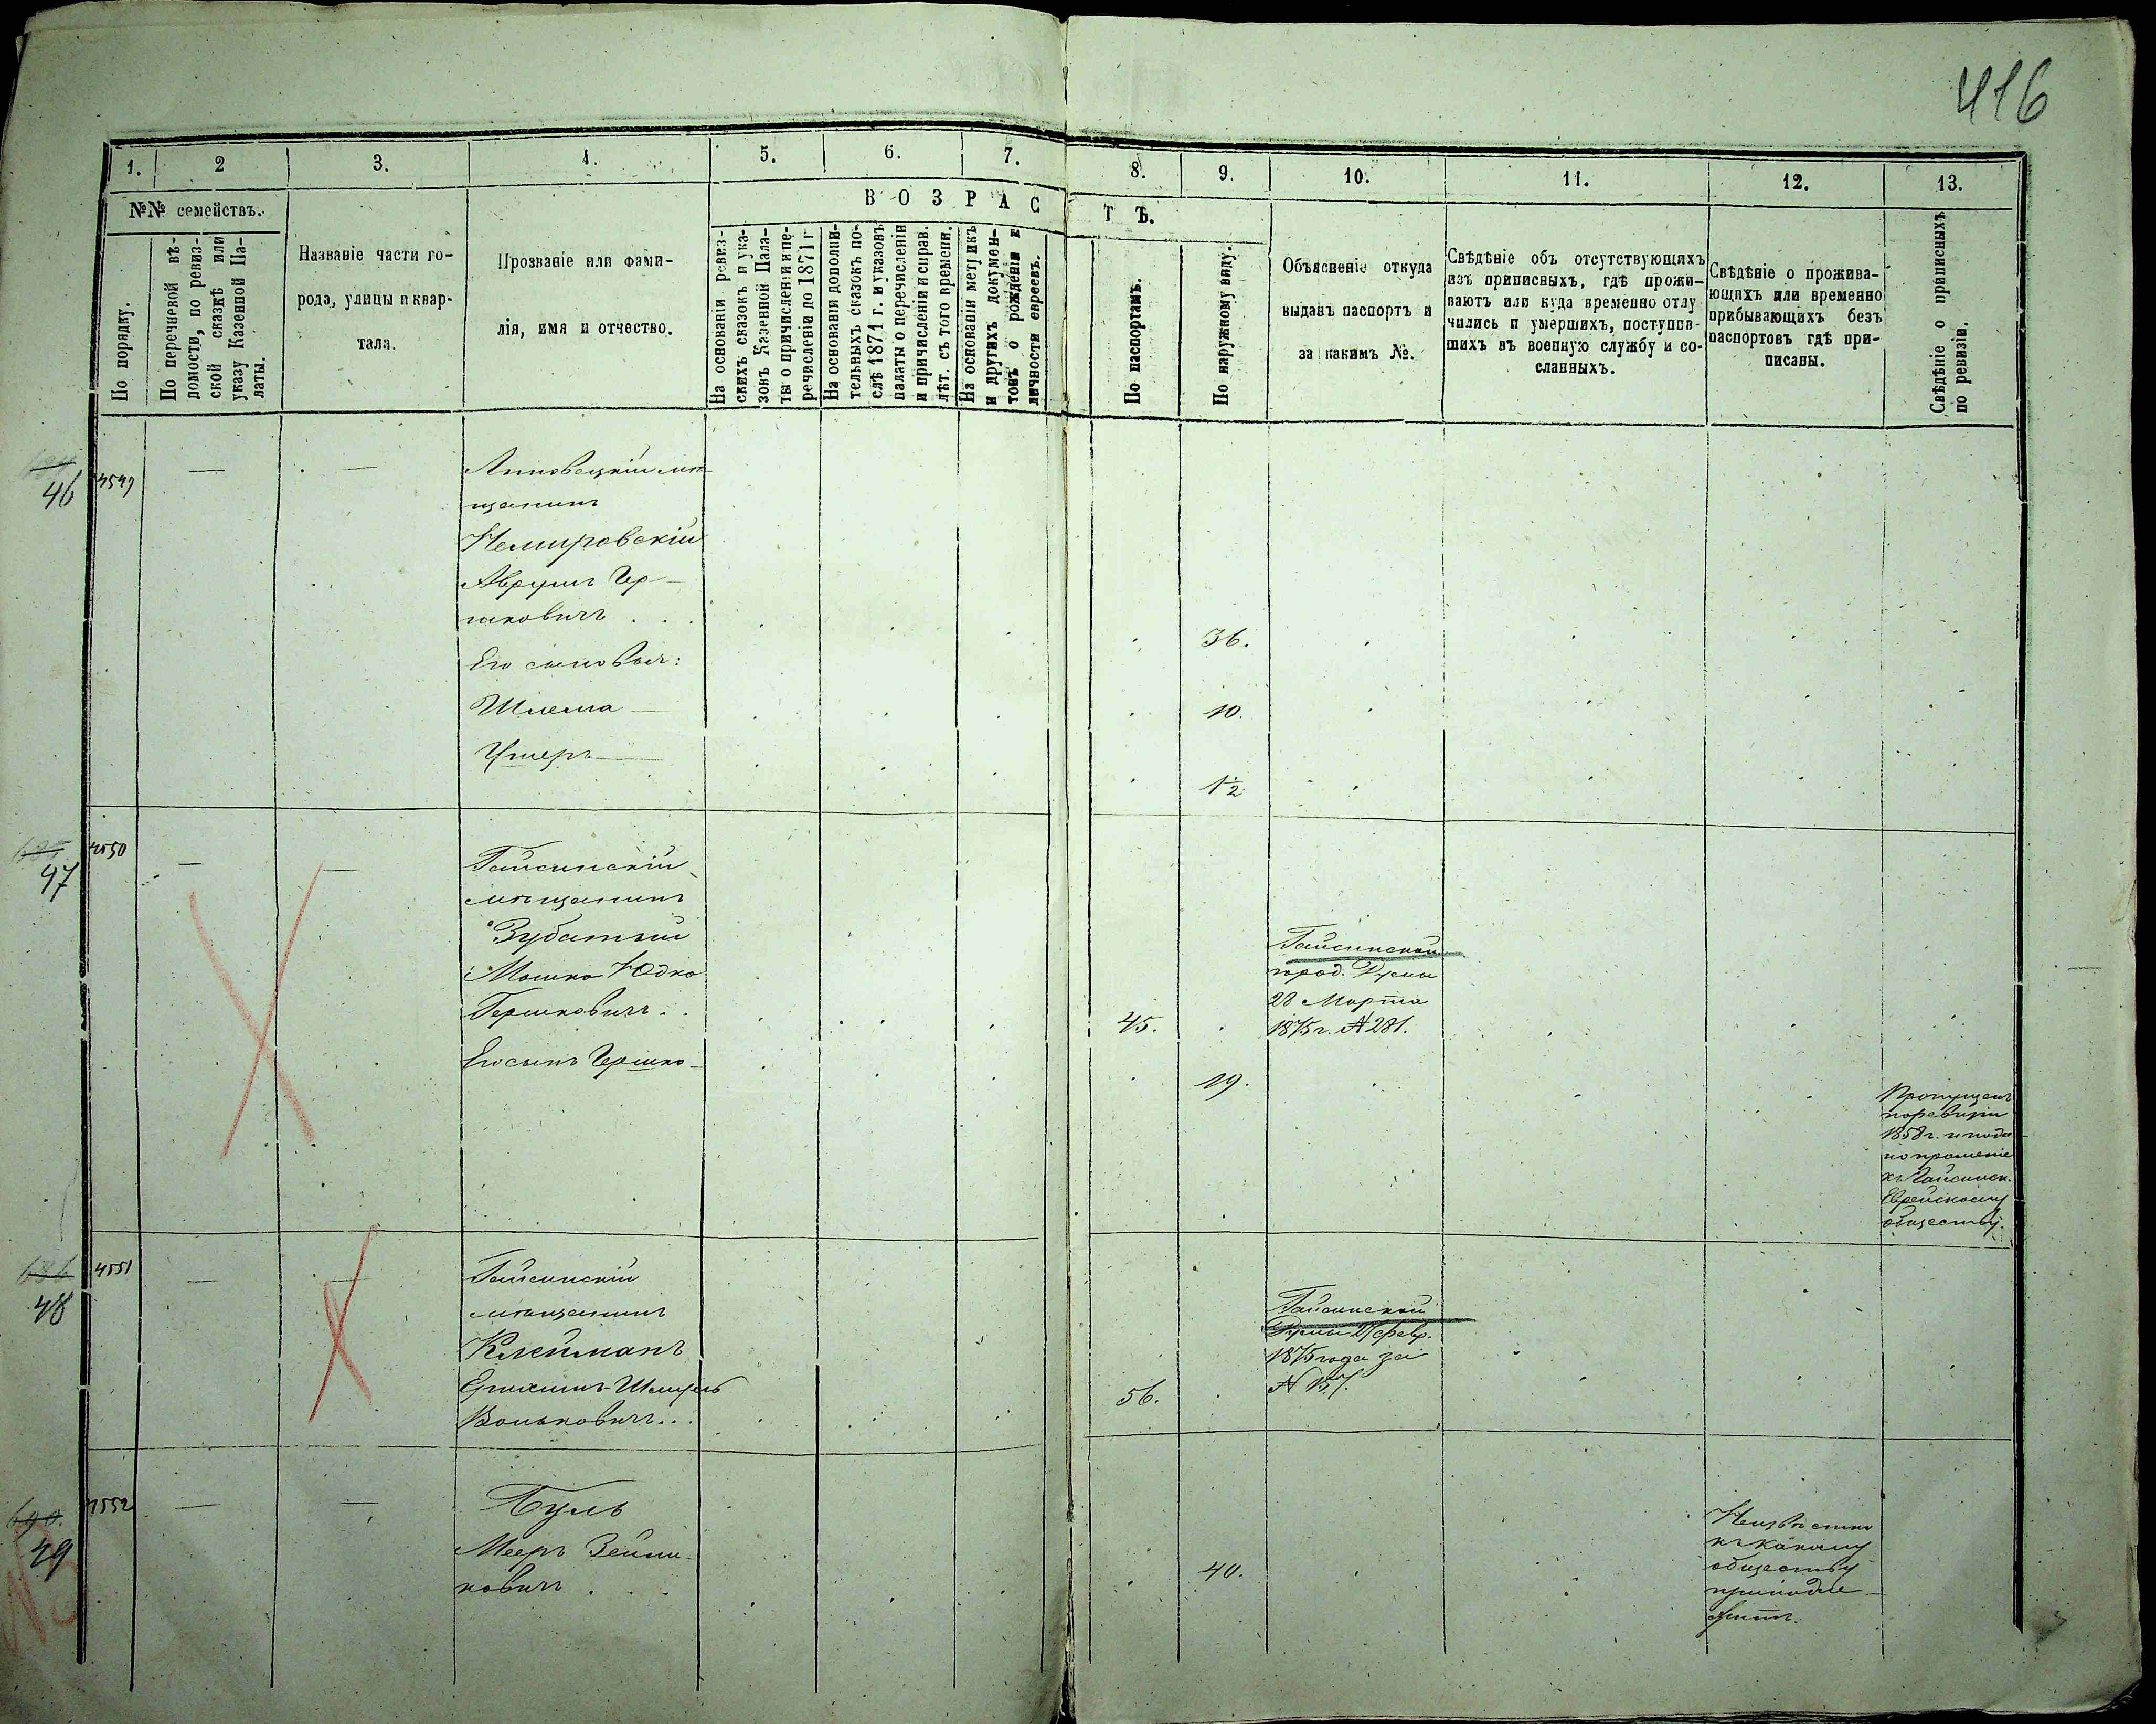 416
1.
2
3.
4.
5.
6.
7.
8.
9.
10.
11.
12.
13.
№№ семействъ.
В О З Р А С Т Ѣ.
По порядку.
По перечневой вѣ-
домости, по ревиз-
ской сказкѣ или
указу Казенной Па-
латы.
Названіе части го-
рода, улицы и квар-
тала.
Прозваніе или фами-
лія, имя и отчество.
На основаніи ревиз-
скихъ сказокъ и ука-
зовъ Казенной Пала-
ты о причисленіи и пе-
речисленіи до 1871 г
На основаніи дополни-
тельныхъ сказокъ по-
слѣ 1871 г. и указовъ
палаты о перечисленіи
и причисленіи и справ.
лѣт. съ того времени.
На основаніи метрикъ
и другихъ докумен-
товъ о рожденіи и
личности евреевъ.
По паспортамъ.
По наружному виду.
Объясненіе откуда
выданъ паспортъ и
за какимъ №.
Свѣдѣніе объ отсутствующихъ
изъ приписныхъ, гдѣ прожи-
ваютъ или куда временно отлу
чились и умершихъ, поступив-
шихъ въ военную службу и со-
сланныхъ.
Свѣдѣніе о прожива-
ющихъ или временно
прибывающихъ безъ
паспортовъ гдѣ при-
писаны.
Свѣдѣніе о приписныхъ
по ревизіи.
46
4549
Липовецкій мѣ-
щанинъ
Немировскій
Аврумъ Гер-
шковичъ . . .
36.
Его сыновья:
Шлема
10.
Ушеръ
1/2
685
47
4550
Гайсинскій
мѣщанинъ
Зубатый
Мошко Юдко
Гершковичъ . .
45.
Гайсинской
город. Думы
28 Марта
1875 г. № 281.
Его сынъ Гершко
19.
Пропущенъ
по ревизіи
1858 г. и пода
но прошеніе
къ Гайсинск.
Еврейскому
обществу.
686
48
4551
Гайсинскій
мѣщанинъ
Клейманъ
Вольковичъ . . .
56.
Гайсинской
Думы 21 февр.
1875 года за
690
49
4552
Буль
Мееръ Зейли-
ковичъ . . .
40.
Неизвѣстно
къ какому
обществу
принадле-
житъ.